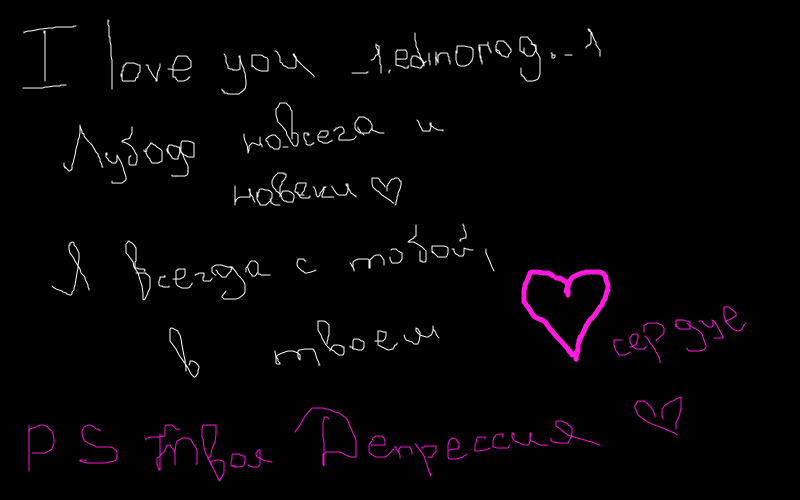 I love you _1.edinorog._1
Лубофь навсега и
навеки ♡
Я всегда с тобой,
в твоем сердце
PS твоя Депрессия ♡